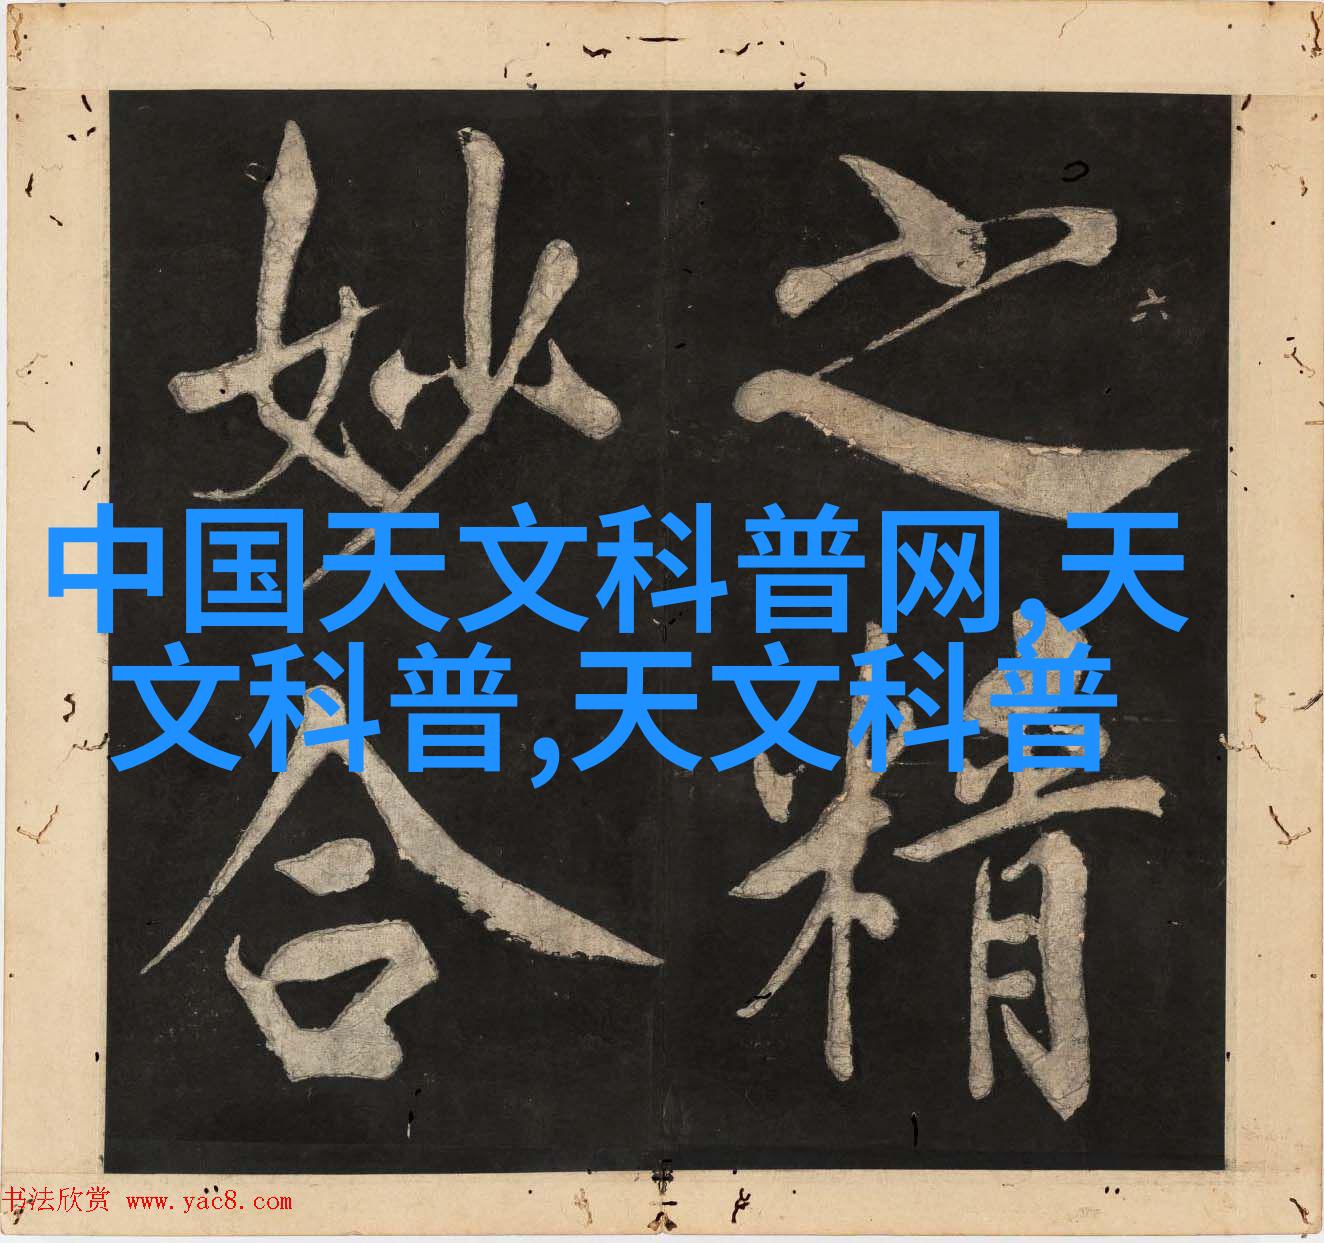 之精
妙合
六
中国天文科普网,天
文科普,天文科普
书法欣赏 www.yac8.com